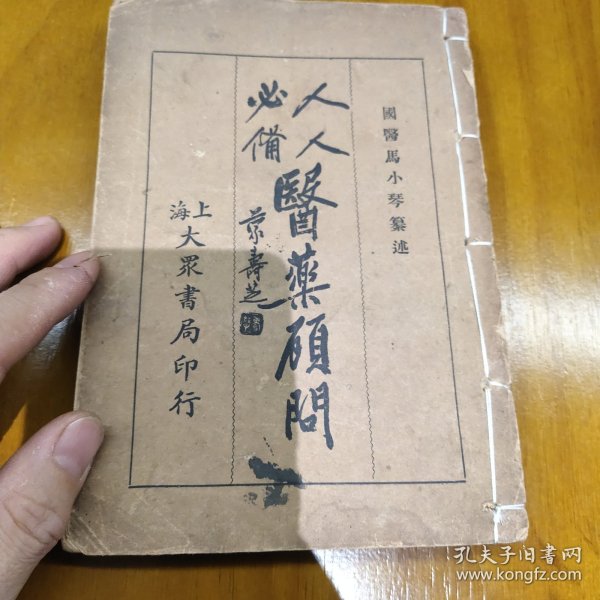 國醫馬小琴纂述
人人必備
醫藥顧問
上海大眾書局印行
孔夫子旧书网
www.kongfz.com